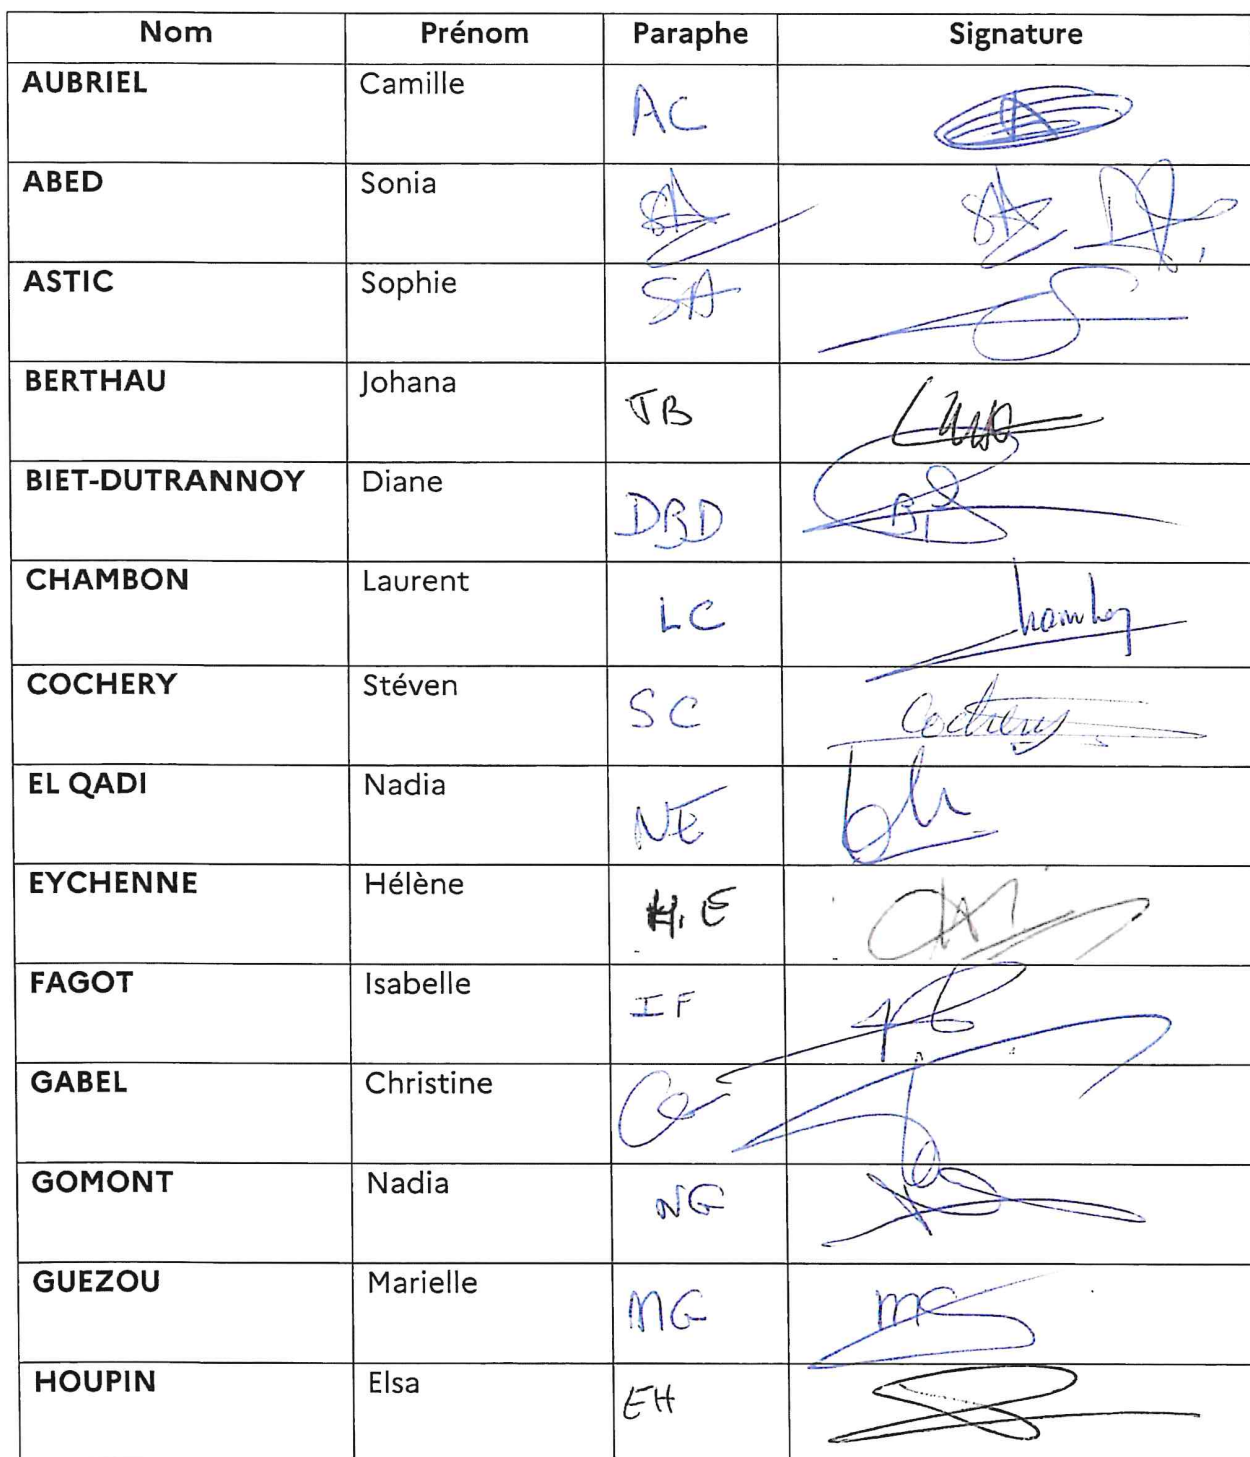 Nom Prénom Paraphe Signature
AUBRIEL Camille AC
ABED Sonia SA SA
ASTIC Sophie SA
BERTHAU Johana JB
BIET-DUTRANNOY Diane DBD
CHAMBON Laurent LC
COCHERY Stéven SC Cochery
EL QADI Nadia NE
EYCHENNE Hélène H.E
FAGOT Isabelle IF
GABEL Christine
GOMONT Nadia NG
GUEZOU Marielle MG MG
HOUPIN Elsa EH